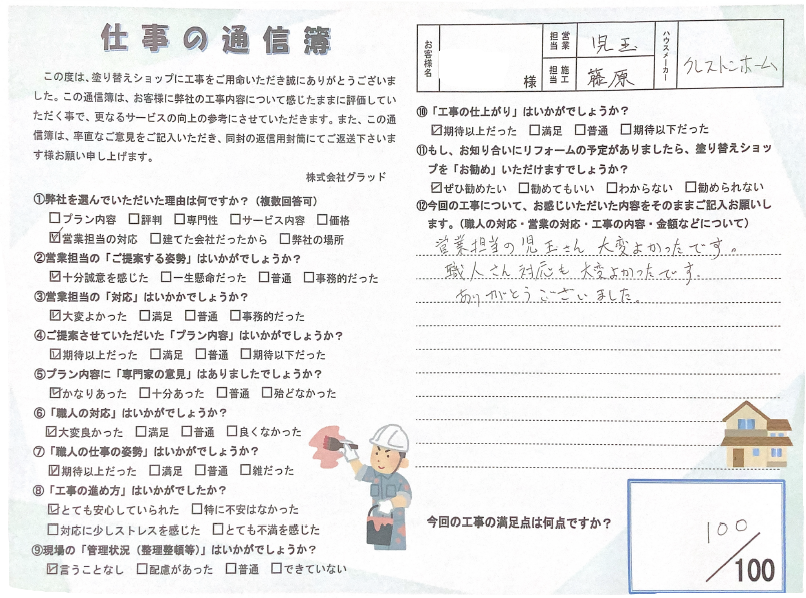 仕事の通信簿
この度は、塗り替えショップに工事をご用命いただき誠にありがとうございま
した。この通信簿は、お客様に弊社の工事内容について感じたままに評価してい
ただく事で、更なるサービスの向上の参考にさせていただきます。また、この通
信簿は、率直なご意見をご記入いただき、同封の返信用封筒にてご返送下さいま
す様お願い申し上げます。
株式会社グラッド
①弊社を選んでいただいた理由は何ですか？（複数回答可）
□プラン内容 □評判 □専門性 □サービス内容 □価格
☑営業担当の対応 □建てた会社だったから □弊社の場所
②営業担当の「ご提案する姿勢」はいかがでしょうか？
☑十分誠意を感じた □一生懸命だった □普通 □事務的だった
③営業担当の「対応」はいかかでしょうか？
☑大変よかった □満足 □普通 □事務的だった
④ご提案させていただいた「プラン内容」はいかがでしょうか？
☑期待以上だった □満足 □普通 □期待以下だった
⑤プラン内容に「専門家の意見」はありましたでしょうか？
☑かなりあった □十分あった □普通 □殆どなかった
⑥「職人の対応」はいかがでしょうか？
☑大変良かった □満足 □普通 □良くなかった
⑦「職人の仕事の姿勢」はいかがでしょうか？
☑期待以上だった □満足 □普通 □雑だった
⑧「工事の進め方」はいかがでしたか？
☑とても安心していられた □特に不安はなかった
□対応に少しストレスを感じた □とても不満を感じた
⑨現場の「管理状況（整理整頓等）」はいかがでしょうか？
☑言うことなし □配慮があった □普通 □できていない
お客様名 様 営業担当 児玉 ハウスメーカー クレストンホーム
施工担当 篠原
⑩「工事の仕上がり」はいかがでしょうか？
☑期待以上だった □満足 □普通 □期待以下だった
⑪もし、お知り合いにリフォームの予定がありましたら、塗り替えショッ
プを「お勧め」いただけますでしょうか？
☑ぜひ勧めたい □勧めてもいい □わからない □勧められない
⑫今回の工事について、お感じいただいた内容をそのままご記入お願いし
ます。（職人の対応・営業の対応・工事の内容・金額などについて）
営業担当の児玉さん 大変よかったです。
職人さん対応も大変よかったです。
ありがとうございました。
今回の工事の満足点は何点ですか？
100
/100